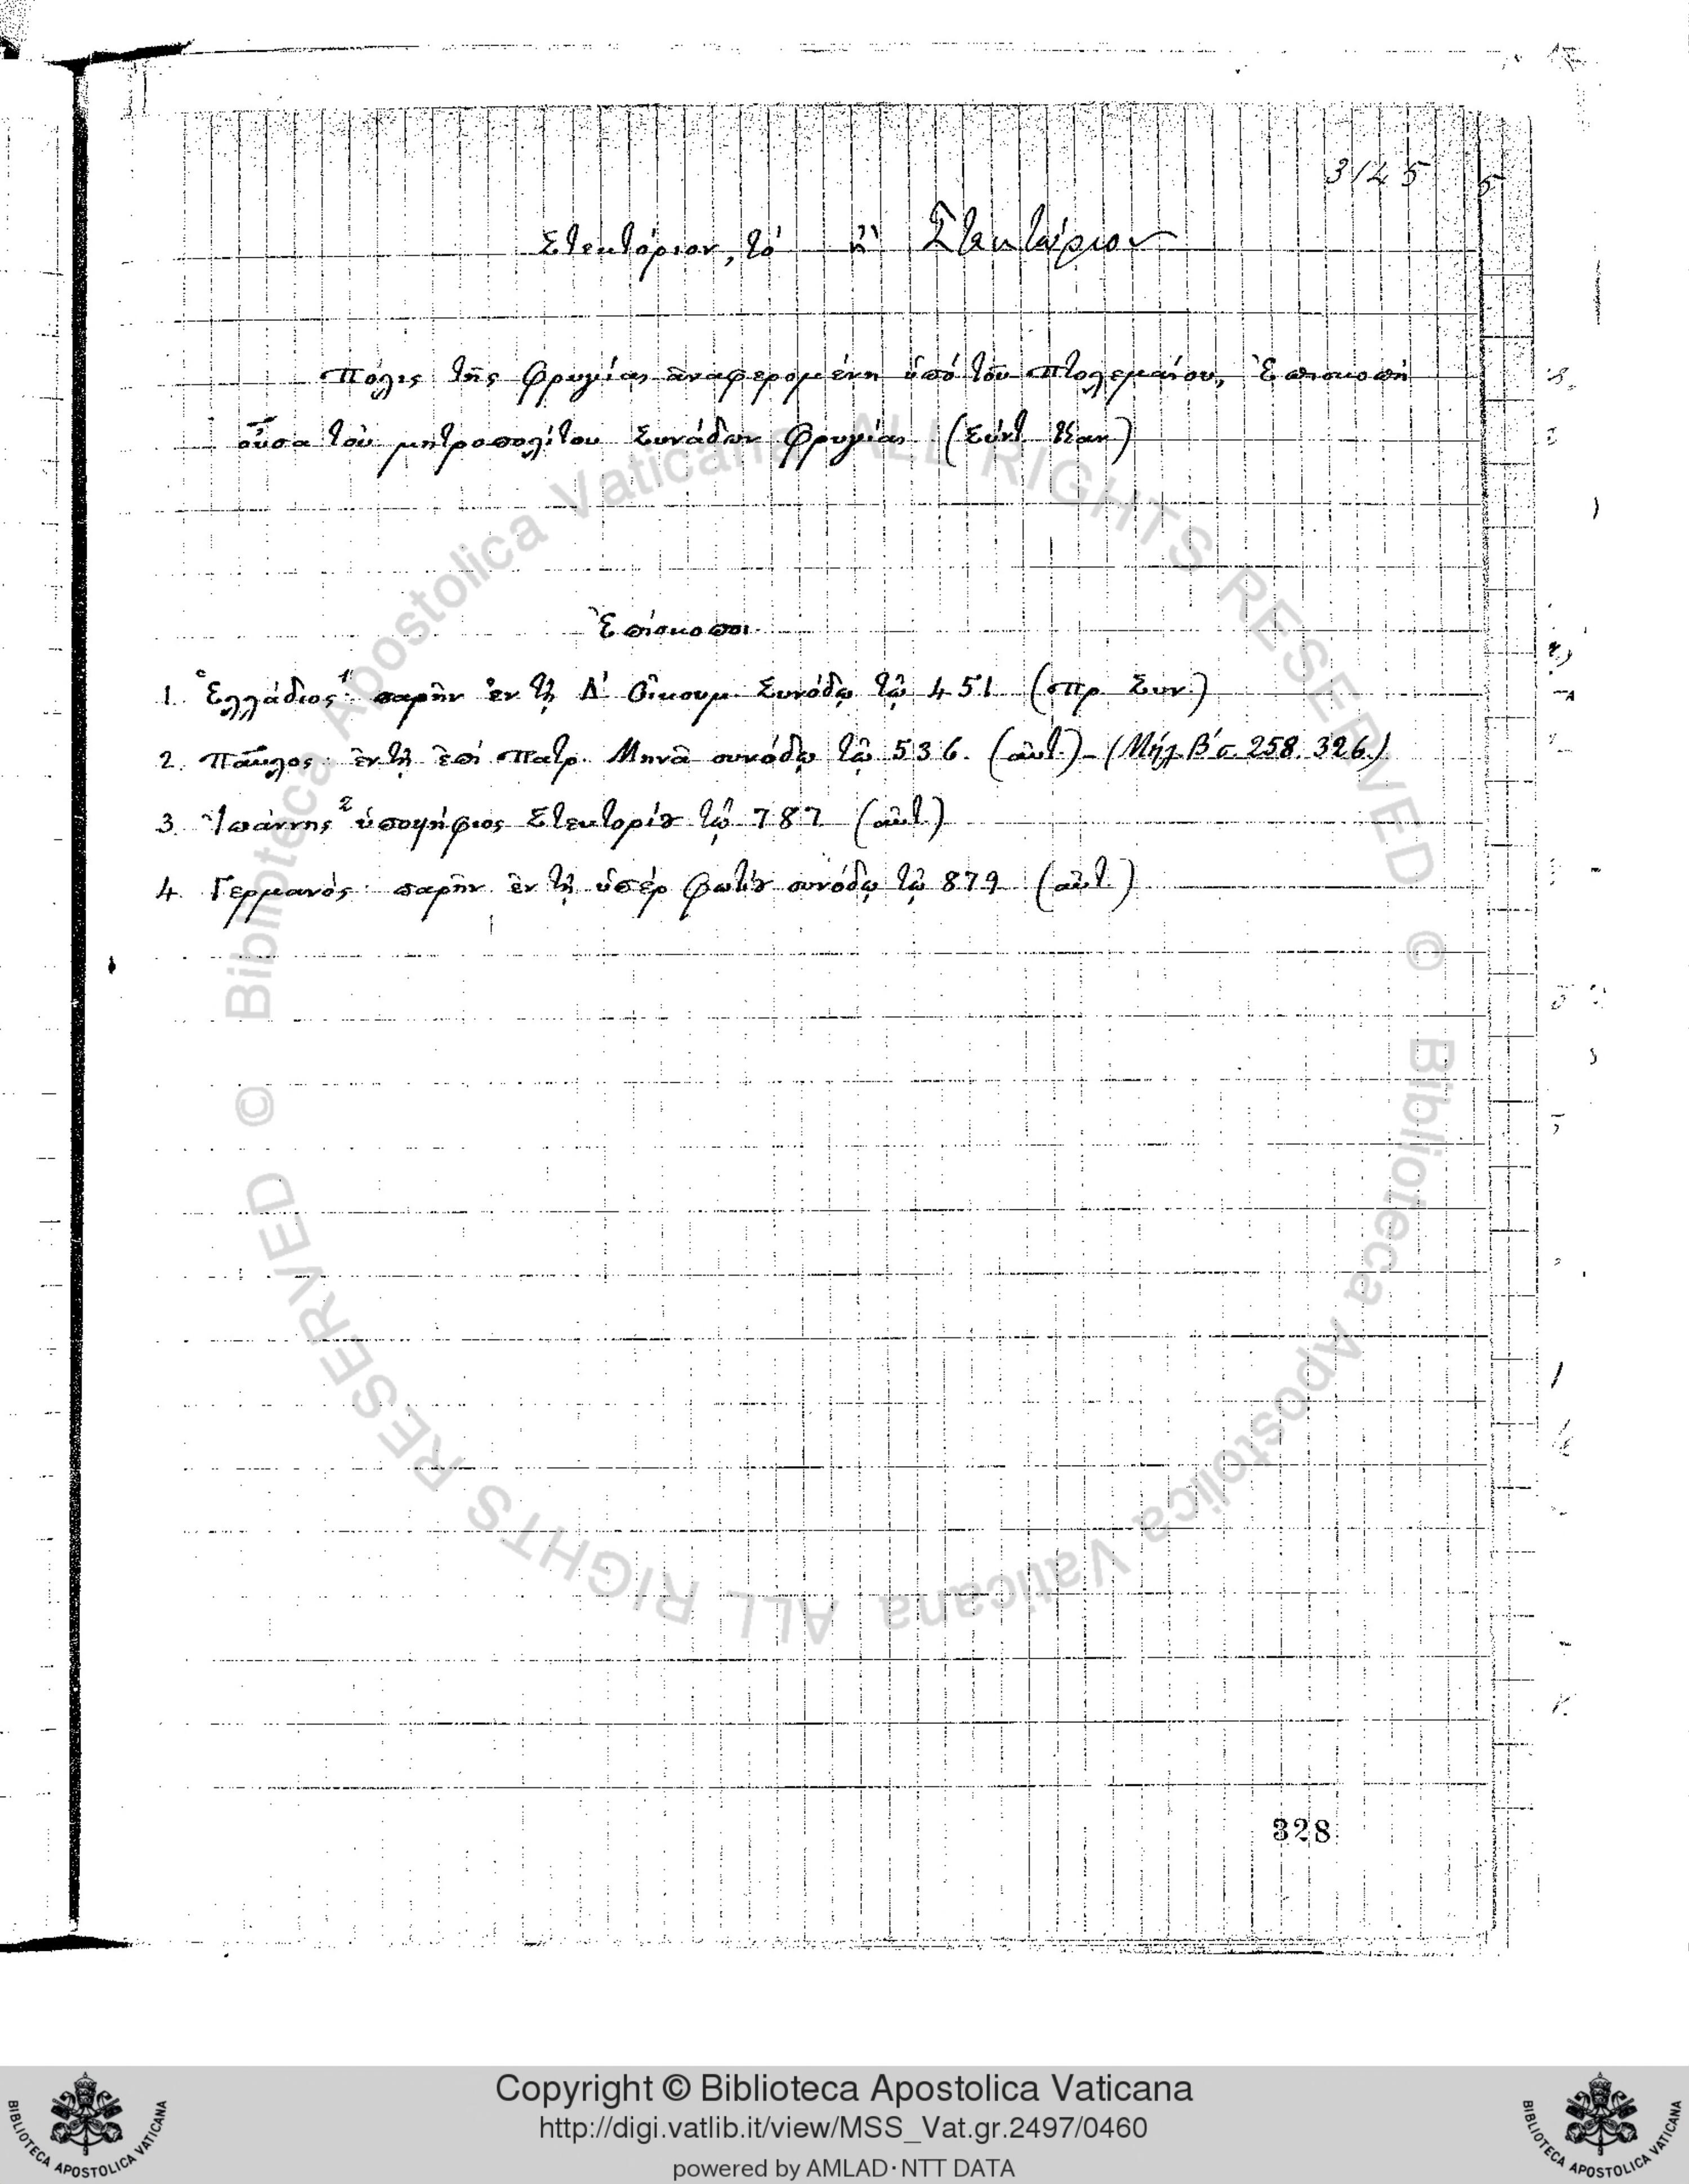 3145
Στεκτόριον, τό ἢ Στεκτώριον
Πόλις τῆς Φρυγίας ἀναφερομένη ὑπό τοῦ Πτολεμαίου, Ἐπισκοπὴ
οὖσα τοῦ μητροπολίτου Συνάδων Φρυγίας (Σύντ. Καν)
Ἐπίσκοποι
1. Ἑλλάδιος¹ παρῆν ἐν τῇ Δ' Οἰκουμ. Συνόδῳ τῷ 451 (Πρ. Συν.)
2. Παῦλος ἐν τῇ ἐπί Πατρ. Μηνᾶ συνόδῳ τῷ 536. (αὐτ.) - (Μήλ. Β'. σ. 258. 326.)
3. Ἰωάννης² ὑποψήφιος Στεκτορίȣ τῷ 787 (αὐτ.)
4. Γερμανός παρῆν ἐν τῇ ὑπέρ Φωτίȣ συνόδῳ τῷ 879 (αὐτ.)
328
© Biblioteca Apostolica Vaticana ALL RIGHTS RESERVED © Biblioteca Apostolica Vaticana ALL RIGHTS RESERVED
Copyright © Biblioteca Apostolica Vaticana
http://digi.vatlib.it/view/MSS_Vat.gr.2497/0460
powered by AMLAD·NTT DATA
BIBLIOTECA APOSTOLICA VATICANA
BIBLIOTECA APOSTOLICA VATICANA